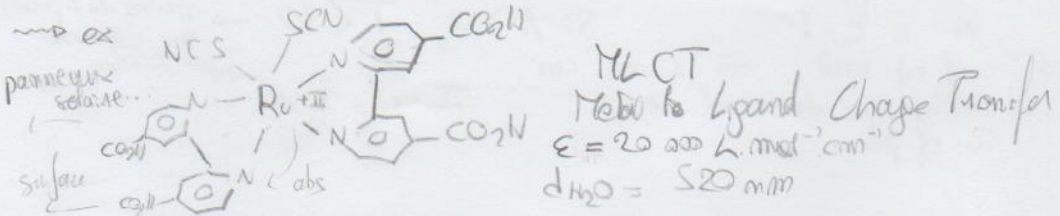 ex
panneaux
solaire...
surface
NCS
SCN
N
CO2H
Ru +II
N
CO2H
N
CO2H
N
CO2H
abs
MLCT
Metal to Ligand Charge Transfer
ε = 20 000 L.mol⁻¹.cm⁻¹
dH2O = 520 nm